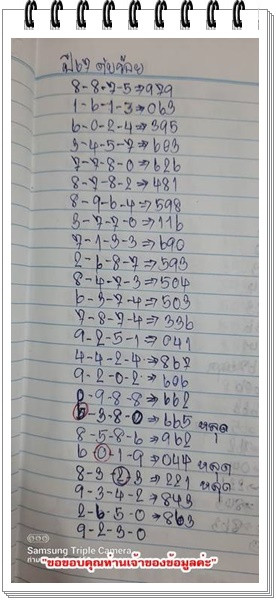 ปี67 ตุ่ยช้อย
8-8-7-5⇒979
1-6-1-3⇒063
6-0-2-4⇒395
3-4-5-7⇒603
7-7-8-0⇒626
8-7-8-2⇒481
8-9-6-4⇒598
3-7-7-0⇒116
7-1-3-3⇒690
2-6-8-7⇒593
8-4-7-3⇒504
6-3-7-4⇒503
7-8-7-4⇒336
9-2-5-1⇒041
4-4-2-4⇒867
9-2-0-2⇒606
0-9-8-8⇒662
5-3-8-0⇒665 หลุด
8-5-8-6⇒962
6-0-1-9⇒044 หลุด
8-3-2-3⇒221 หลุด
9-3-4-2⇒843
2-6-5-0⇒863
9-2-3-0
Samsung Triple Camera
"ขอขอบคุณท่านเจ้าของข้อมูลค่ะ"